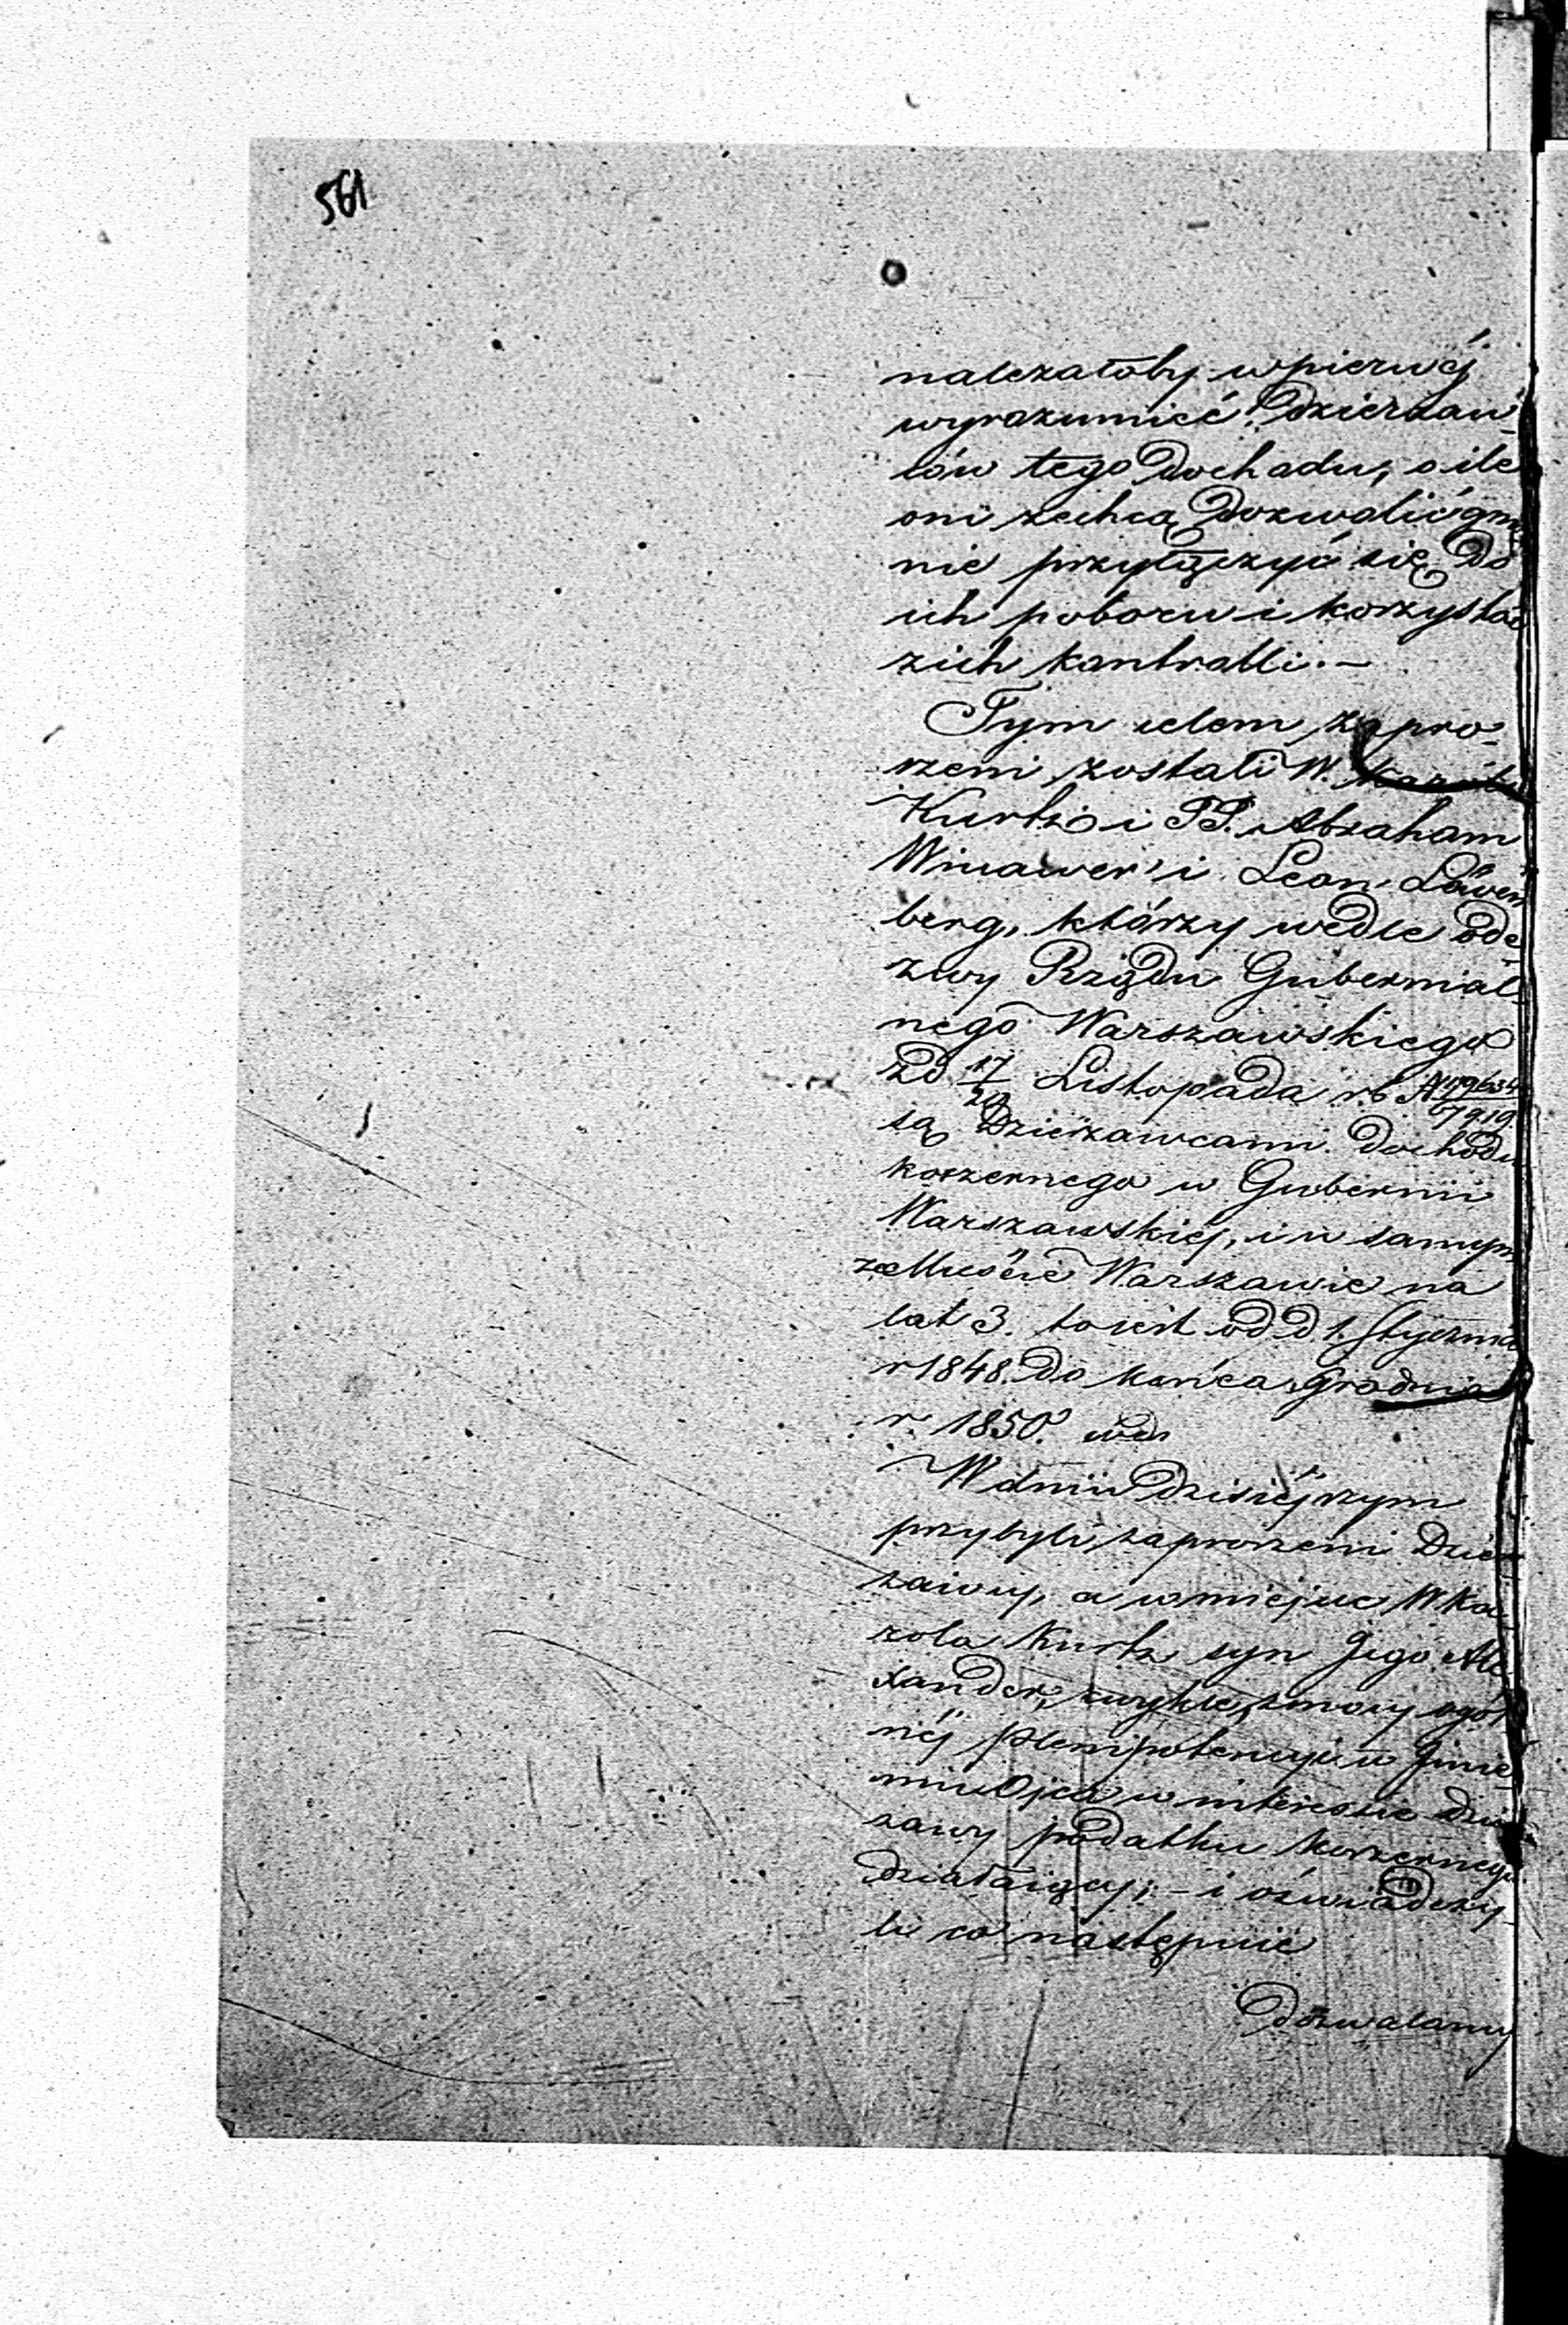 561
należałoby wpierwéj
wyrozumieć Dzierżaw-
ców tego Dochodu, o ile
oni zechcą Dozwolić gmi
nie przyłączyć się do
ich poboru i korzystać
z ich kontrolli. —
Tym celem zapro-
szeni zostali W. Karól
Kurtz i PP. Abraham
Winawer i Leon Löwen
berg, którzy wedle ode
zwy Rządu Gubernial-
nego Warszawskiego
z d 17/29 Listopada r b N
są Dzierżawcami Dochodu
koszernego w Gubernii
Warszawskiéj, i w samym
że Mieście Warszawie na
lat 3. to iest od d 1. Stycznia
r 1848 Do końca Grudnia
r. 1850.
W dniu Dzisiéjszym
przybyli zaproszeni Dzier
żawcy, a w miejsce W Ka
rola Kurtz syn Jego Ale
xander, zwykle z mocy ogól
néj Plenipotencyi w Imie
niu Ojca w interessie dzier
żawy podatku koszernego
działaiący; – i oświadczy-
li co następuie
Dozwalamy